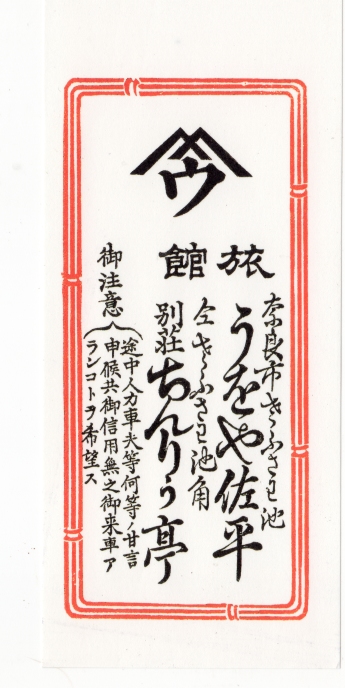 ウ
旅館
奈良市さるさわ池
うをや佐平
仝さるさわ池角
別荘ちんりう亭
御注意
途中人力車夫等何等ノ甘言
申候共御信用無之御来車ア
ランコトヲ希望ス